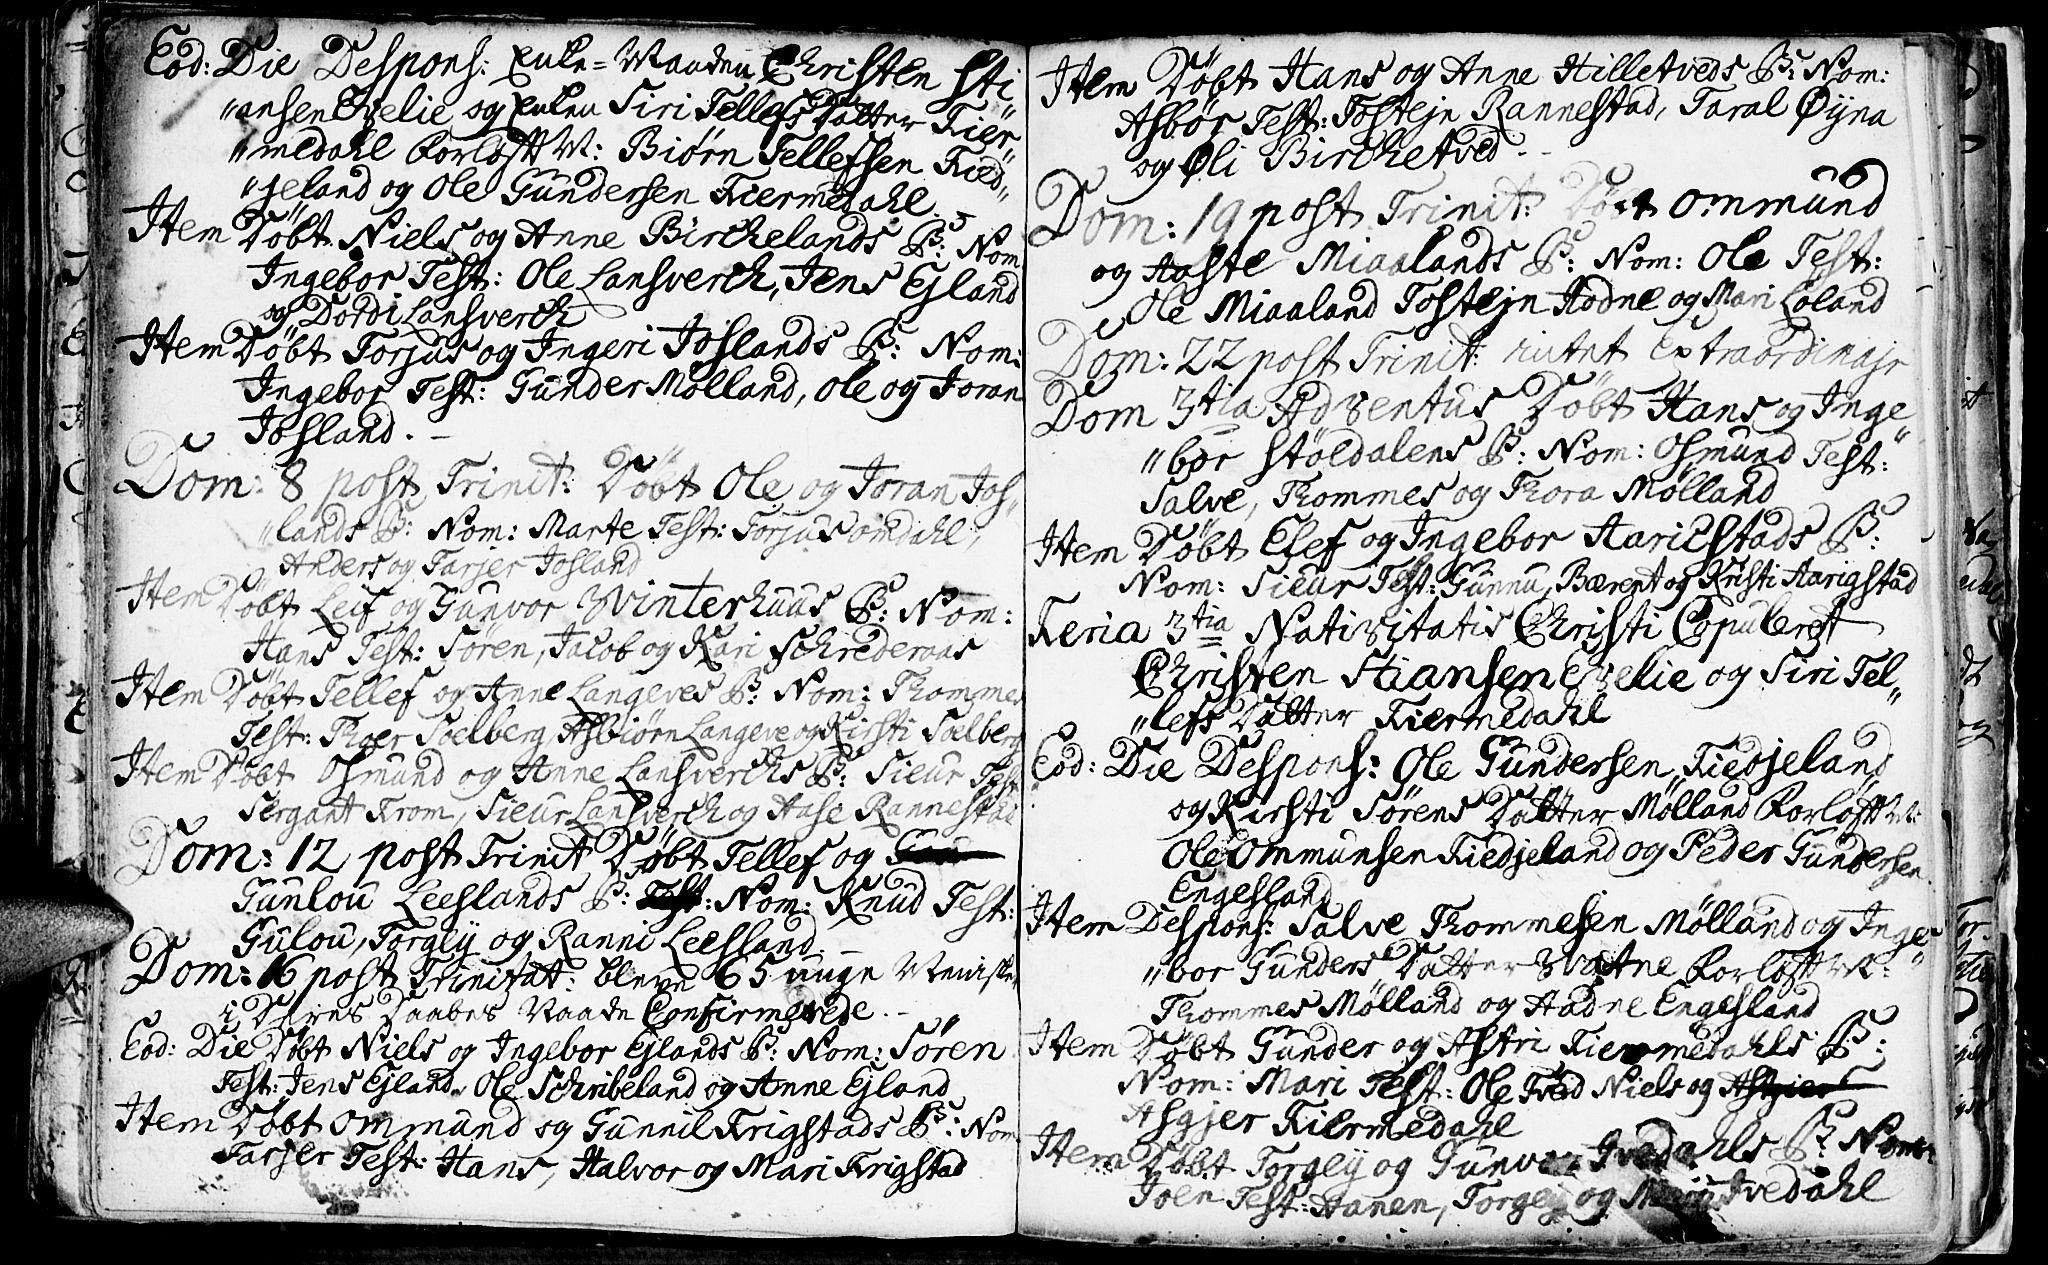 Eod: Die Despons: Enke-Manden Christen Sti
"ansen Evelie og Enken Siri Tellefs Datter Fier"
"medahl Forlofft M: Biørn Tellefsen Fied"
"jeland og Ole Gundersen Fiermedahl.
Item Döbt Niels og Anne Birchelands B: Nom
Ingebor Test: Ole Lansverch, Jens Ejland
og Dordi Lansverch
Item Döbt Torjus og Ingeri Joslands B: Nom:
Ingebor Test: Gunder Mölland, Ole og Joran
Josland. -
Dom: 8 post Trinit: Döbt Ole og Joran Jos"
"lands B: Nom: Marte Test: Torjus Omdahl,
Anders og Tarjer Josland
Item Döbt Leif og Gunvor Winterhuus B: Nom:
Hans Test: Sören, Jacob og Kari Schrederaas
Item Döbt Tellef og Anne Langeves B: Nom: Thommes
Test: Thoer Soelberg, Asbiörn Langeve og Kirsti Soelberg
Item Döbt Osmund og Anne Lansverchs B: Sieur Test
Sergant From, Sieur Lansverch og Aase Rannestad
Dom: 12 post Trinit Döbt Tellef og
Gunlou Leeslands B: Nom: Knud Test:
Gulou, Torgej og Ranni Leesland. -
Dom: 16 post Trinitat: bleve 65 unge Menisker
i Deres Daabes Naade Confirmerede. -
Eod: Die Döbt Niels og Ingebor Ejlands B: Nom: Sören
Test: Jens Ejland, Ole Schribeland og Anne Ejland
Item Döbt Ommund og Gunnil Frigstads B: Nom
Tarjer Test: Hans, Halvor og Mari Frigstad
Item Döbt Hans og Anne Hilletveds B: Nom:
Asbör Test: Tostejn Rannestad, Taral Øyna
og Øli Birchetved. -
Dom: 19 post Trinit: Döbt Ommund
og Aaste Miaalands B: Nom: Ole Test:
Ole Miaaland Tostejn Hodne og Mari Löland
Dom: 22 post Trinit: intet Extraordinajr
Dom 3tia Adventus Döbt Hans og Inge"
"bor Stöldalens B: Nom: Osmund Test:
Salve, Thommes og Thora Mölland
Item Döbt Elef og Ingebor Aarigstads B:
Nom: Sieur Test: Gunnu, Bærent og Kristi Aarigstad
Feria 3tia Nativitatis Christi Copuleret
Christen Stiansen Evelie og Siri Tel"
"lefs Datter Fiermedahl
Eod: Die Despons: Ole Gundersen Fiedjeland
og Kirsti Sörens Datter Mölland Forlofft M:
Ole Ommunsen Fiedjeland og Peder Gundersen
Engesland
Item Despons: Salve Thommesen Mölland og Inge"
"bor Gunders Datter Hvatne Forlofft M:
Thommes Mölland og Aadne Engesland
Item Döbt Gunder og Astri Fiermedahls B:
Nom: Mari Test: Ole Niels og
Asgjer Fiermedahl
Item Döbt Torgej og Gunvor Ivedahls B: Nom:
Joen Test: Aanen, Torgej og Ivedahl